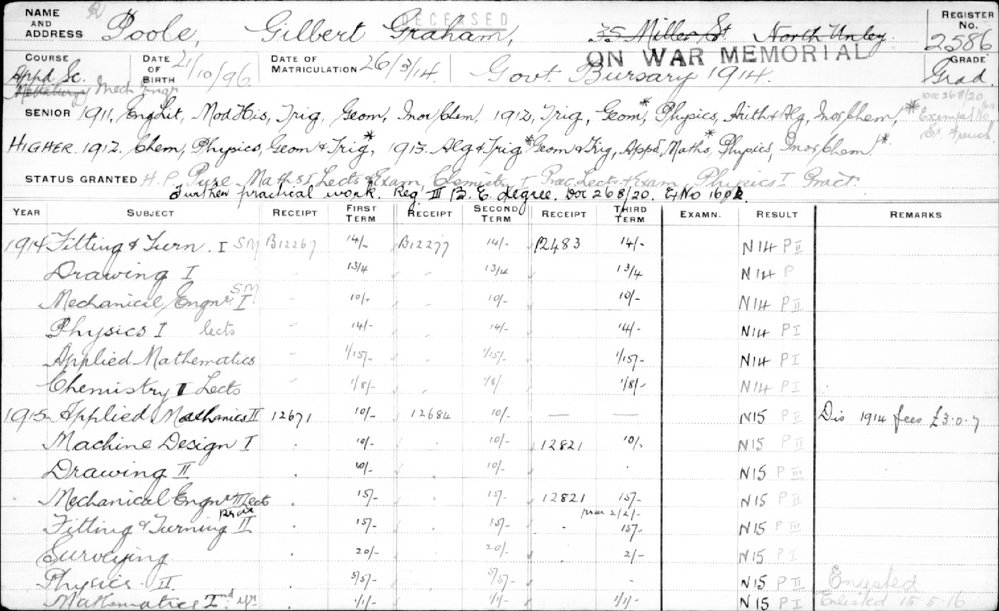 NAME AND ADDRESS Poole, Gilbert Graham, 35 Miller St North Unley. REGISTER No. 2586
DECEASED
ON WAR MEMORIAL
COURSE Appd Sc. Metallurgy Mech Engr DATE OF BIRTH 21/10/96 DATE OF MATRICULATION 26/3/14 Govt. Bursary 1914. GRADE Grad.
SENIOR 1911, Eng Lit, Mod His, Trig, Geom, Inor Chem, 1912, Trig, Geom,* Physics, Arith & Alg, Inor Chem,*
Doc 268/20
HIGHER. 1912. Chem, Physics, Geom & Trig*, 1913. Alg & Trig* Geom & Trig, Appd Maths,* Physics, Inor Chem*.
STATUS GRANTED H.P. Pure Maths I Lects & Exam Chemistry I Prac Lects & Exam, Physics I Pract.
Further practical work. Reg. III B.E. degree. Doc 268/20.
YEAR SUBJECT RECEIPT FIRST TERM RECEIPT SECOND TERM RECEIPT THIRD TERM EXAMN. RESULT REMARKS
1914 Fitting & Turn. I SM B12267 14/- B12277 14/- B2483 14/- N14 P II
Drawing I 13/4 13/4 13/4 N14 P
Mechanical Engnr I SM 10/- 10/- 10/- N14 P II
Physics I lects 14/- 14/- 14/- N14 P I
Applied Mathematics 1/15/- 1/15/- 1/15/- N14 P I
Chemistry I Lects 1/8/- 1/8/ 1/8/- N14 P I
1915 Applied Mechanics II 12671 10/- 12684 10/- — — N15 P II Dis 1914 fees £3.0.7
Machine Design I 10/- 10/- 12821 10/- N15 P II
Drawing II 10/- 10/- N15 P III
Mechanical Engnr II Lects 15/- 15/- 12821 15/- N15 P II
prac prac 2/2/-
Fitting & Turning II 15/- 15/- 15/- N15 P III
Surveying 20/- 20/- 2/- N15 P I
Physics II 5/5/- 5/5/- N15 P II Enlisted
Mathematics I 2nd yr. 1/1/- 1/1/- 1/1/- N15 P I Enlisted 15.5.16